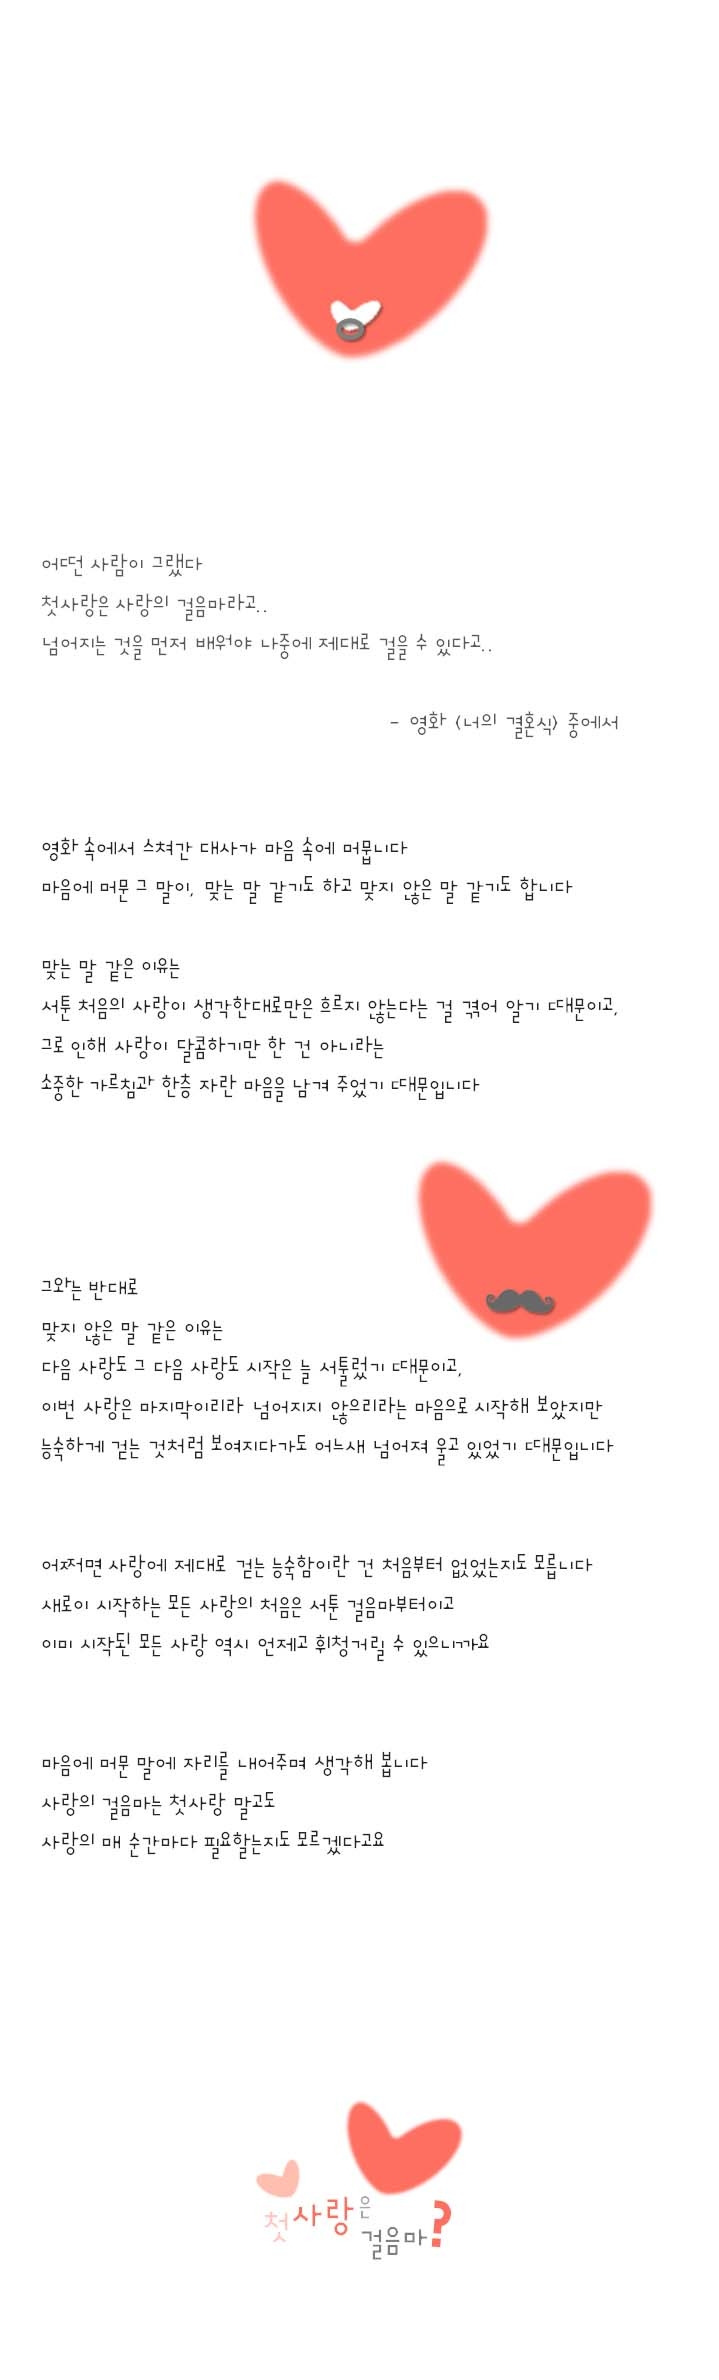 어떤 사람이 그랬다
첫사랑은 사랑의 걸음마라고..
넘어지는 것을 먼저 배워야 나중에 제대로 걸을 수 있다고..
- 영화 <너의 결혼식> 중에서
영화 속에서 스쳐간 대사가 마음 속에 머뭅니다
마음에 머문 그 말이, 맞는 말 같기도 하고 맞지 않은 말 같기도 합니다
맞는 말 같은 이유는
서툰 처음의 사랑이 생각한대로만은 흐르지 않는다는 걸 겪어 알기 때문이고,
그로 인해 사랑이 달콤하기만 한 건 아니라는
소중한 가르침과 한층 자란 마음을 남겨 주었기 때문입니다
그와는 반대로
맞지 않은 말 같은 이유는
다음 사랑도 그 다음 사랑도 시작은 늘 서툴렀기 때문이고,
이번 사랑은 마지막이리라 넘어지지 않으리라는 마음으로 시작해 보았지만
능숙하게 걷는 것처럼 보여지다가도 어느새 넘어져 울고 있었기 때문입니다
어쩌면 사랑에 제대로 걷는 능숙함이란 건 처음부터 없었는지도 모릅니다
새로이 시작하는 모든 사랑의 처음은 서툰 걸음마부터이고
이미 시작된 모든 사랑 역시 언제고 휘청거릴 수 있으니까요
마음에 머문 말에 자리를 내어주며 생각해 봅니다
사랑의 걸음마는 첫사랑 말고도
사랑의 매 순간마다 필요할는지도 모르겠다고요
첫사랑은
걸음마?